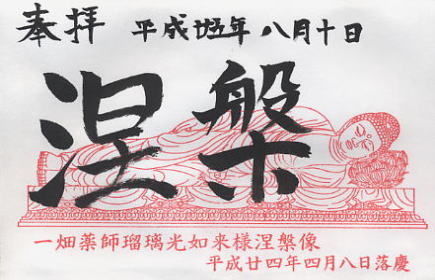 奉拝 平成廿五年 八月十日
涅槃
一畑薬師瑠璃光如来様涅槃像
平成廿四年四月八日落慶